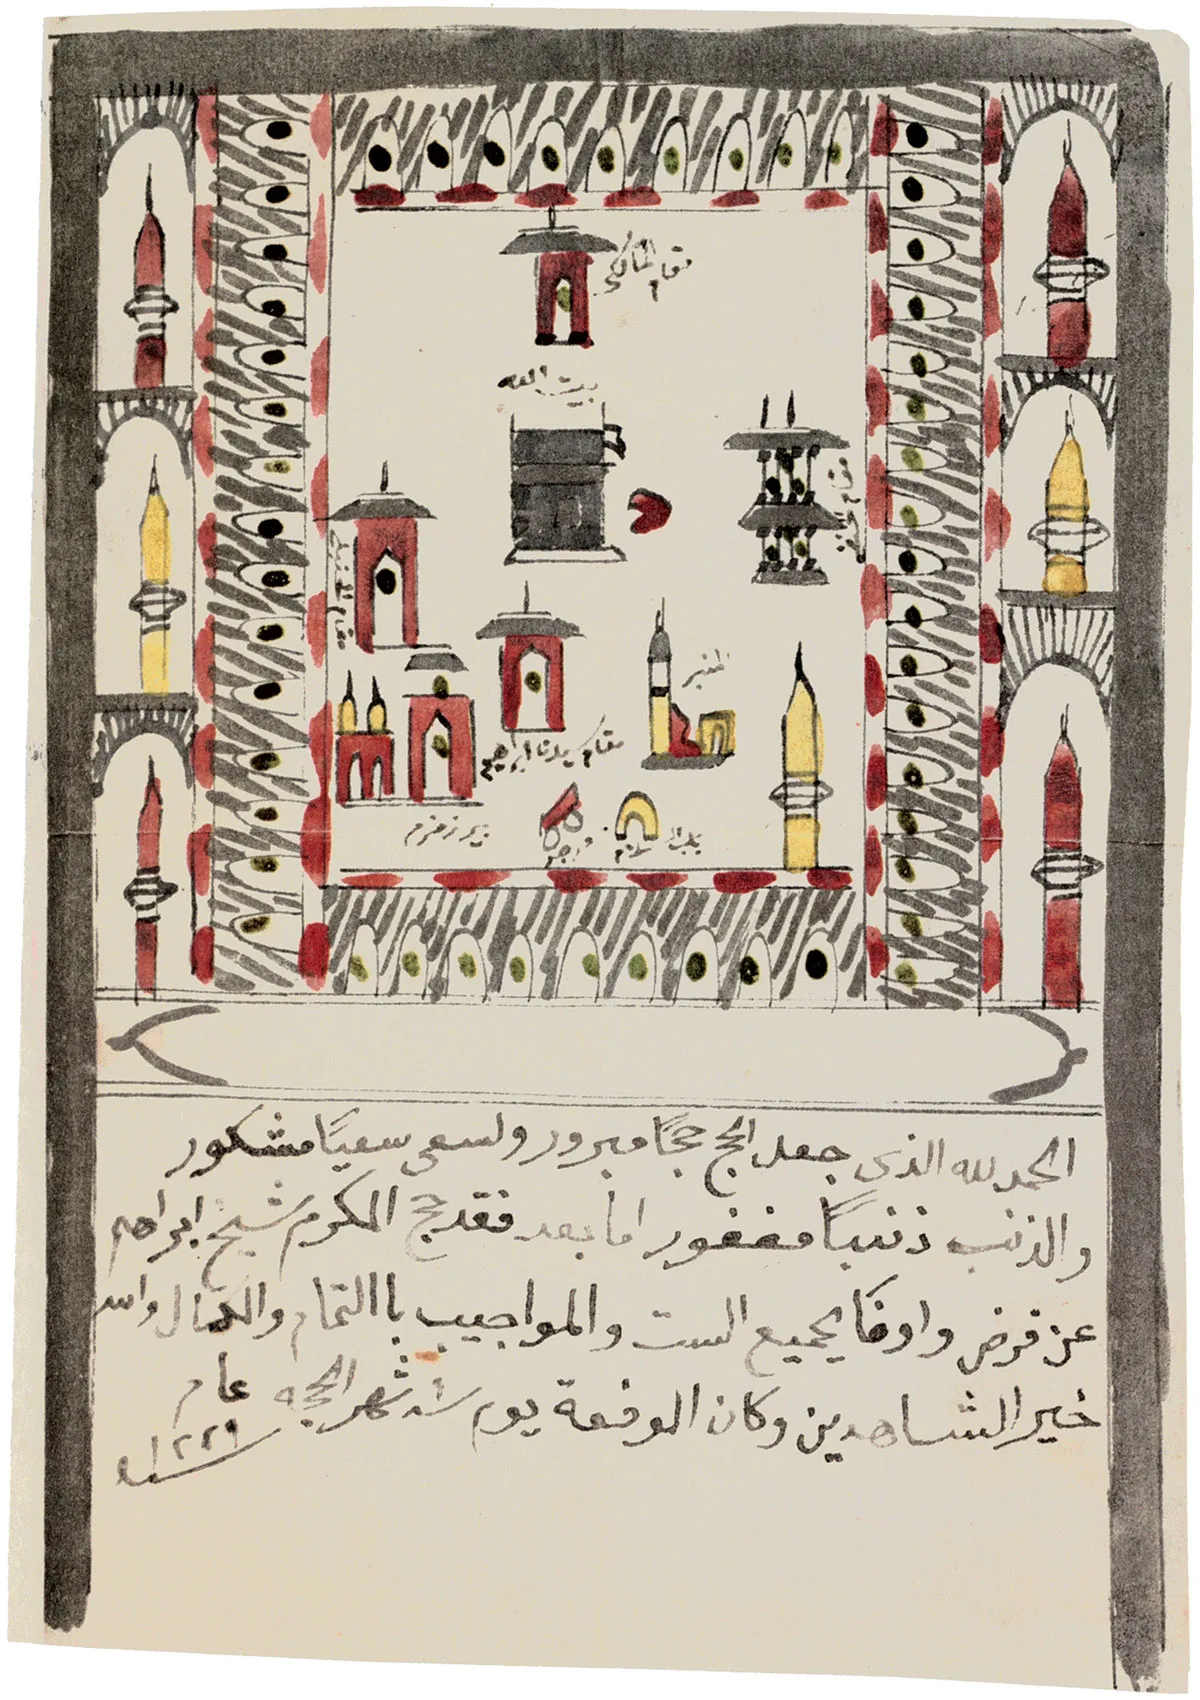 مقام المالكي
بيت الله
مقام الحنفي
مقام
المنبر
مقام سيدنا ابراهيم
باب السلام
درجه
بير زمزم
الحمد لله الذى جعل الحج حجًا مبرور ولسعى سعيًا مشكور
والذنب ذنبًا مغفور اما بعد فقد حج المكرم شيخ ابراهيم
عن فرض واوفا بجميع الست والمواجيب باالتمام والكمال والله
خير الشاهدين وكان الوقعة يوم شهر الحجه عام
سنه ١٢٢٩